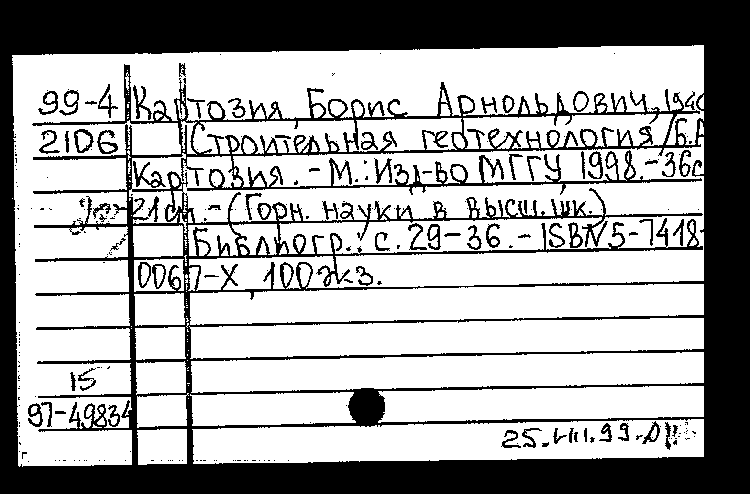 99-4 Картозия, Борис Арнольдович, 1940
2106 Строительная геотехнология /Б.А
Картозия. - М.: Изд-во МГГУ, 1998. - 36с
21см. - (Горн. науки в высш. шк.)
Библиогр.: с. 29-36. - ISBN 5-7418-
0067-X, 100экз.
15
97-49834
25.VIII.99